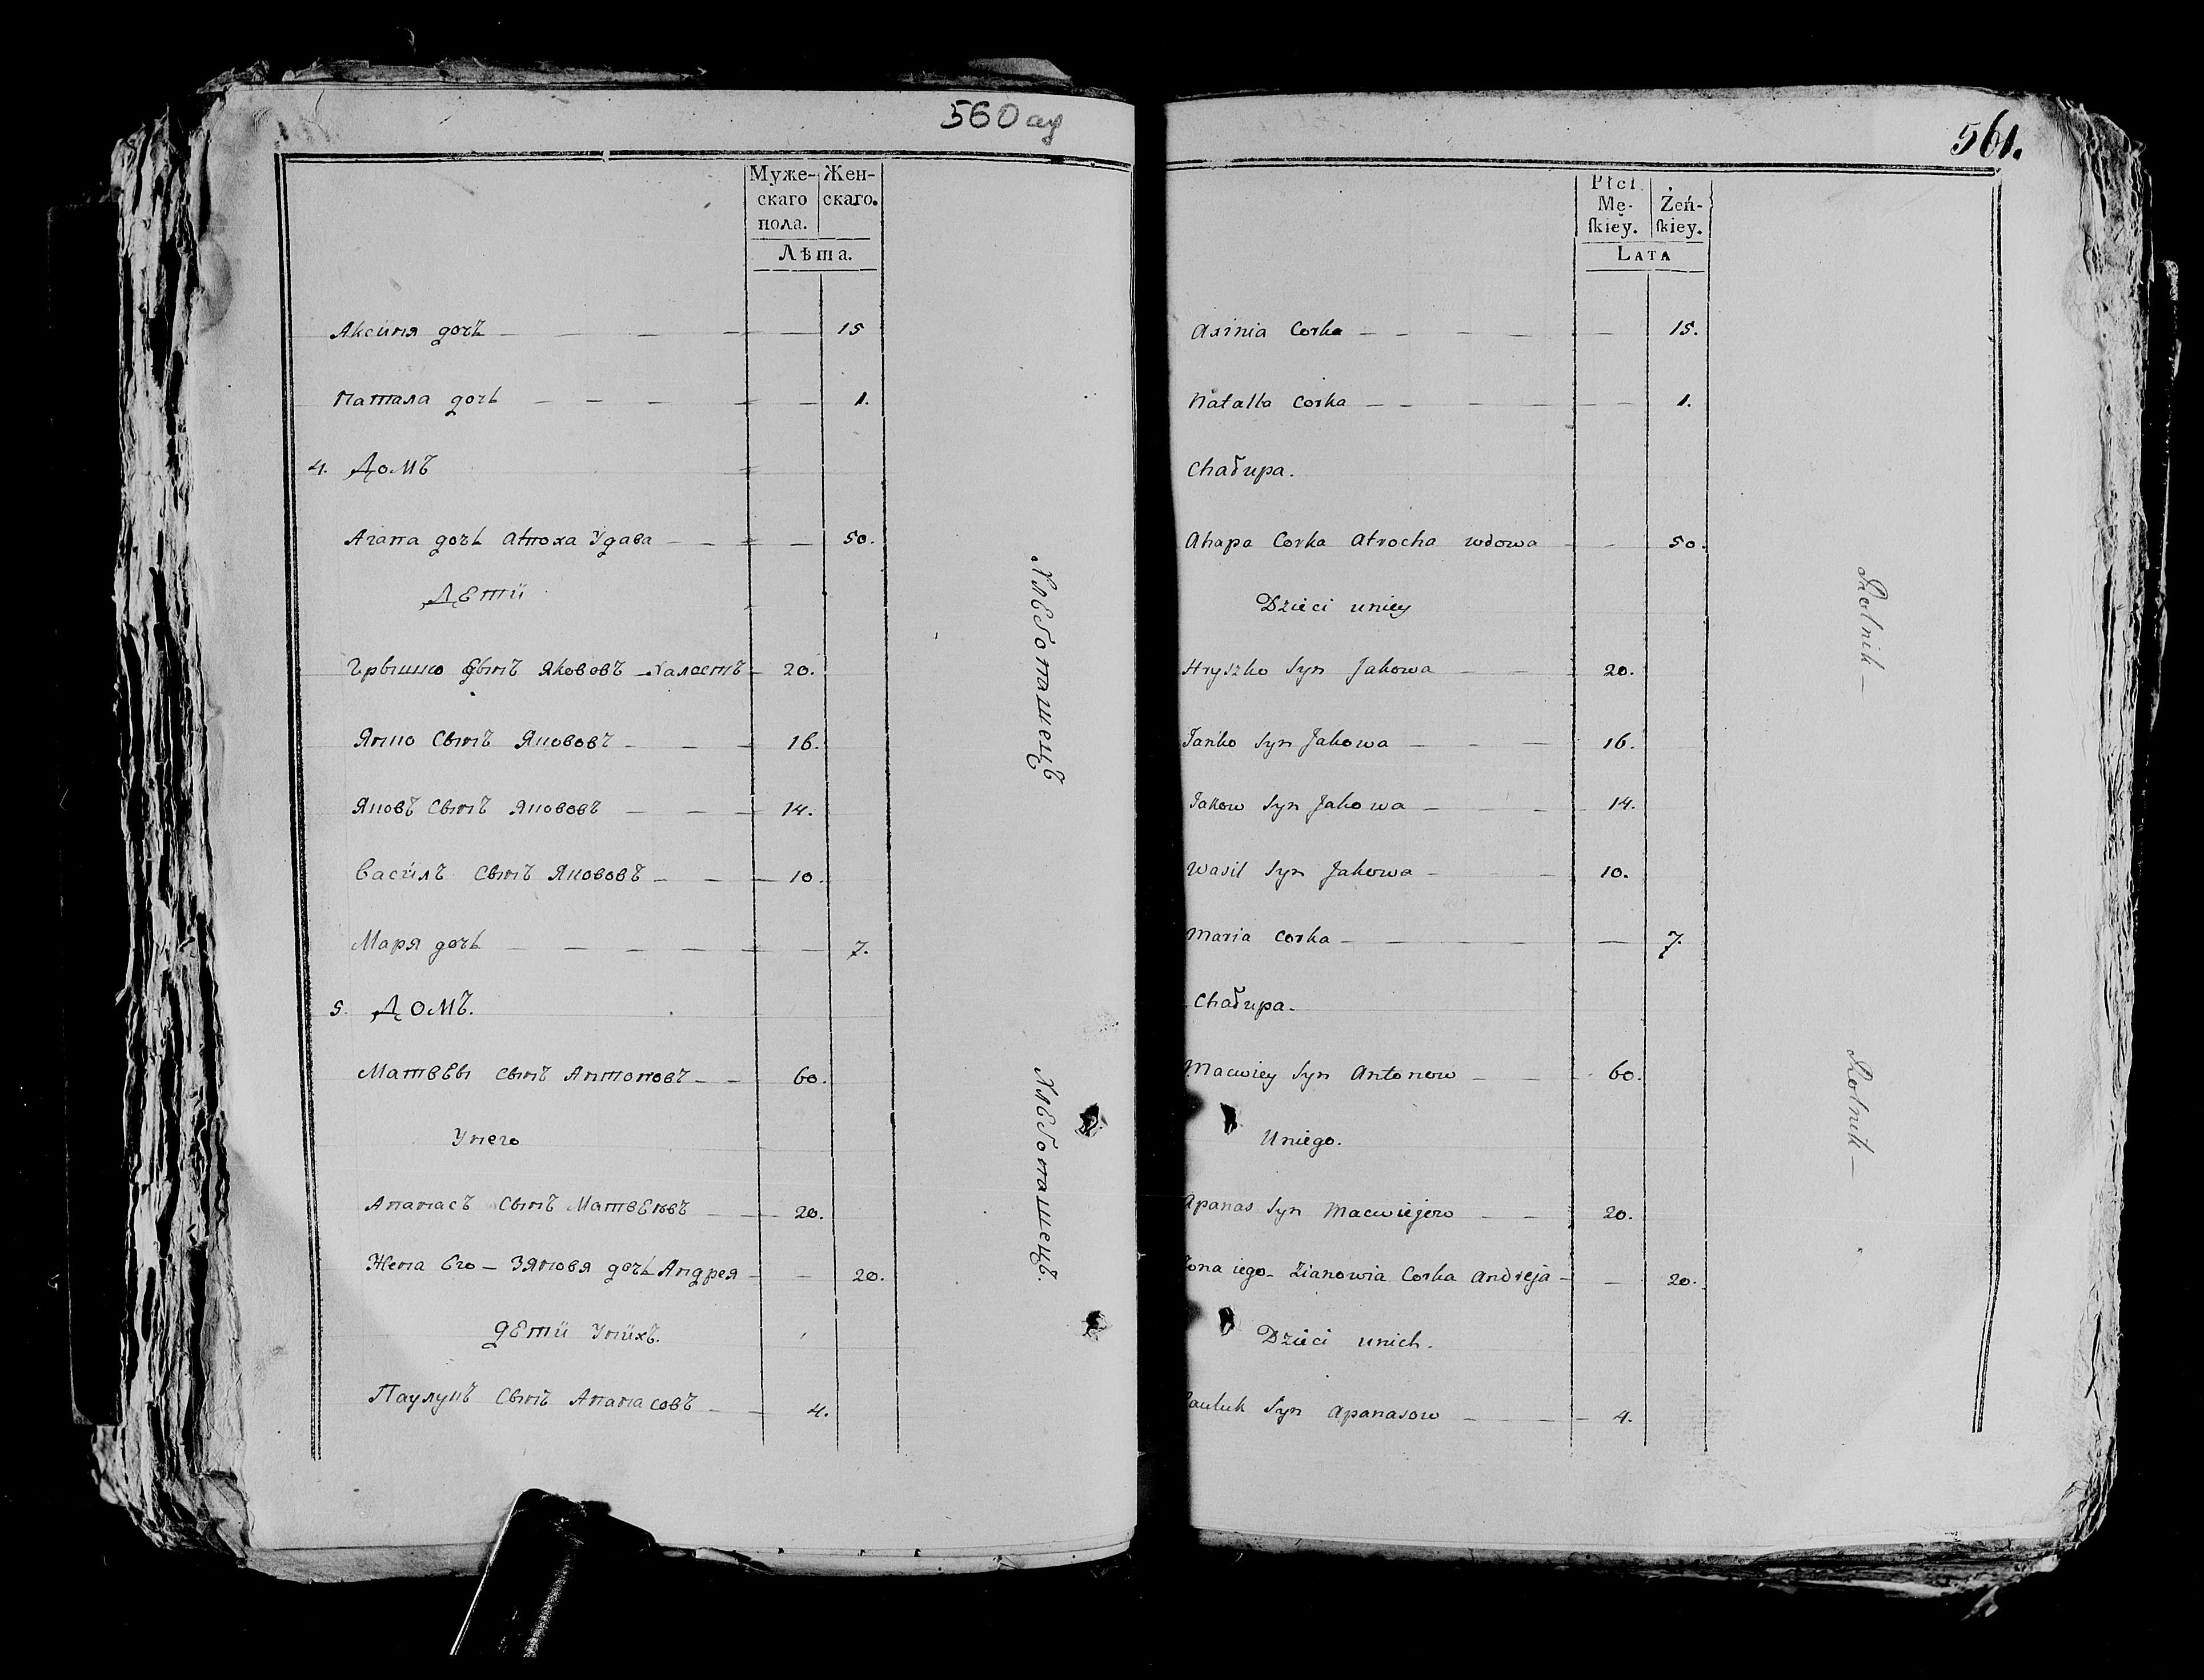 560 ау
Муже-
скаго
пола.
Жен-
скаго.
Лѣта.
Аксиня дочъ — — — — — 15
Натала дочь — — — — — 1.
4. Домъ
Агапа дочь Атроха Удава — — — — 50.
Дети
Грышко Сынъ Якововъ — Халостъ — 20.
Янко Сынъ Якововъ — — — 16.
Яковъ Сынъ Якововъ — — — 14.
Василъ Сынъ Якововъ — — — 10.
Маря дочь — — — — — — 7.
5. Домъ.
Матвеы Сынъ Антоновъ — — 60.
Унего
Апанасъ Сынъ Матвеевъ — — 20.
Жена Его — Зяновя дочь Андрея — — 20.
Дети Унихъ.
Паулукъ Сынъ Апанасовъ — — 4.
Хлебопашецъ
Хлебопашецъ.
561.
Płci
Mę-
skiey.
Żeń-
skiey.
LATA
Axinia Corka — — — — — 15.
Natalla Corka — — — — — 1.
Chałupa.
Ahapa Corka Atrocha wdowa — - 50.
Dzieci uniey
Hryszko Syn Jakowa — — — 20.
Janko Syn Jakowa — — — 16.
Jakow Syn Jakowa — — — 14.
Wasil Syn Jakowa — — 10.
Maria Corka — — — — — 7.
Chałupa.
Macwiey Syn Antonow — — - 60.
Uniego.
Apanas Syn Macwiejew — — 20.
Żona iego - Zianowia Corka Andreja — — 20.
Dzieci unich.
Pauluk Syn Apanasow — — — 4.
Rolnik —
Rolnik —